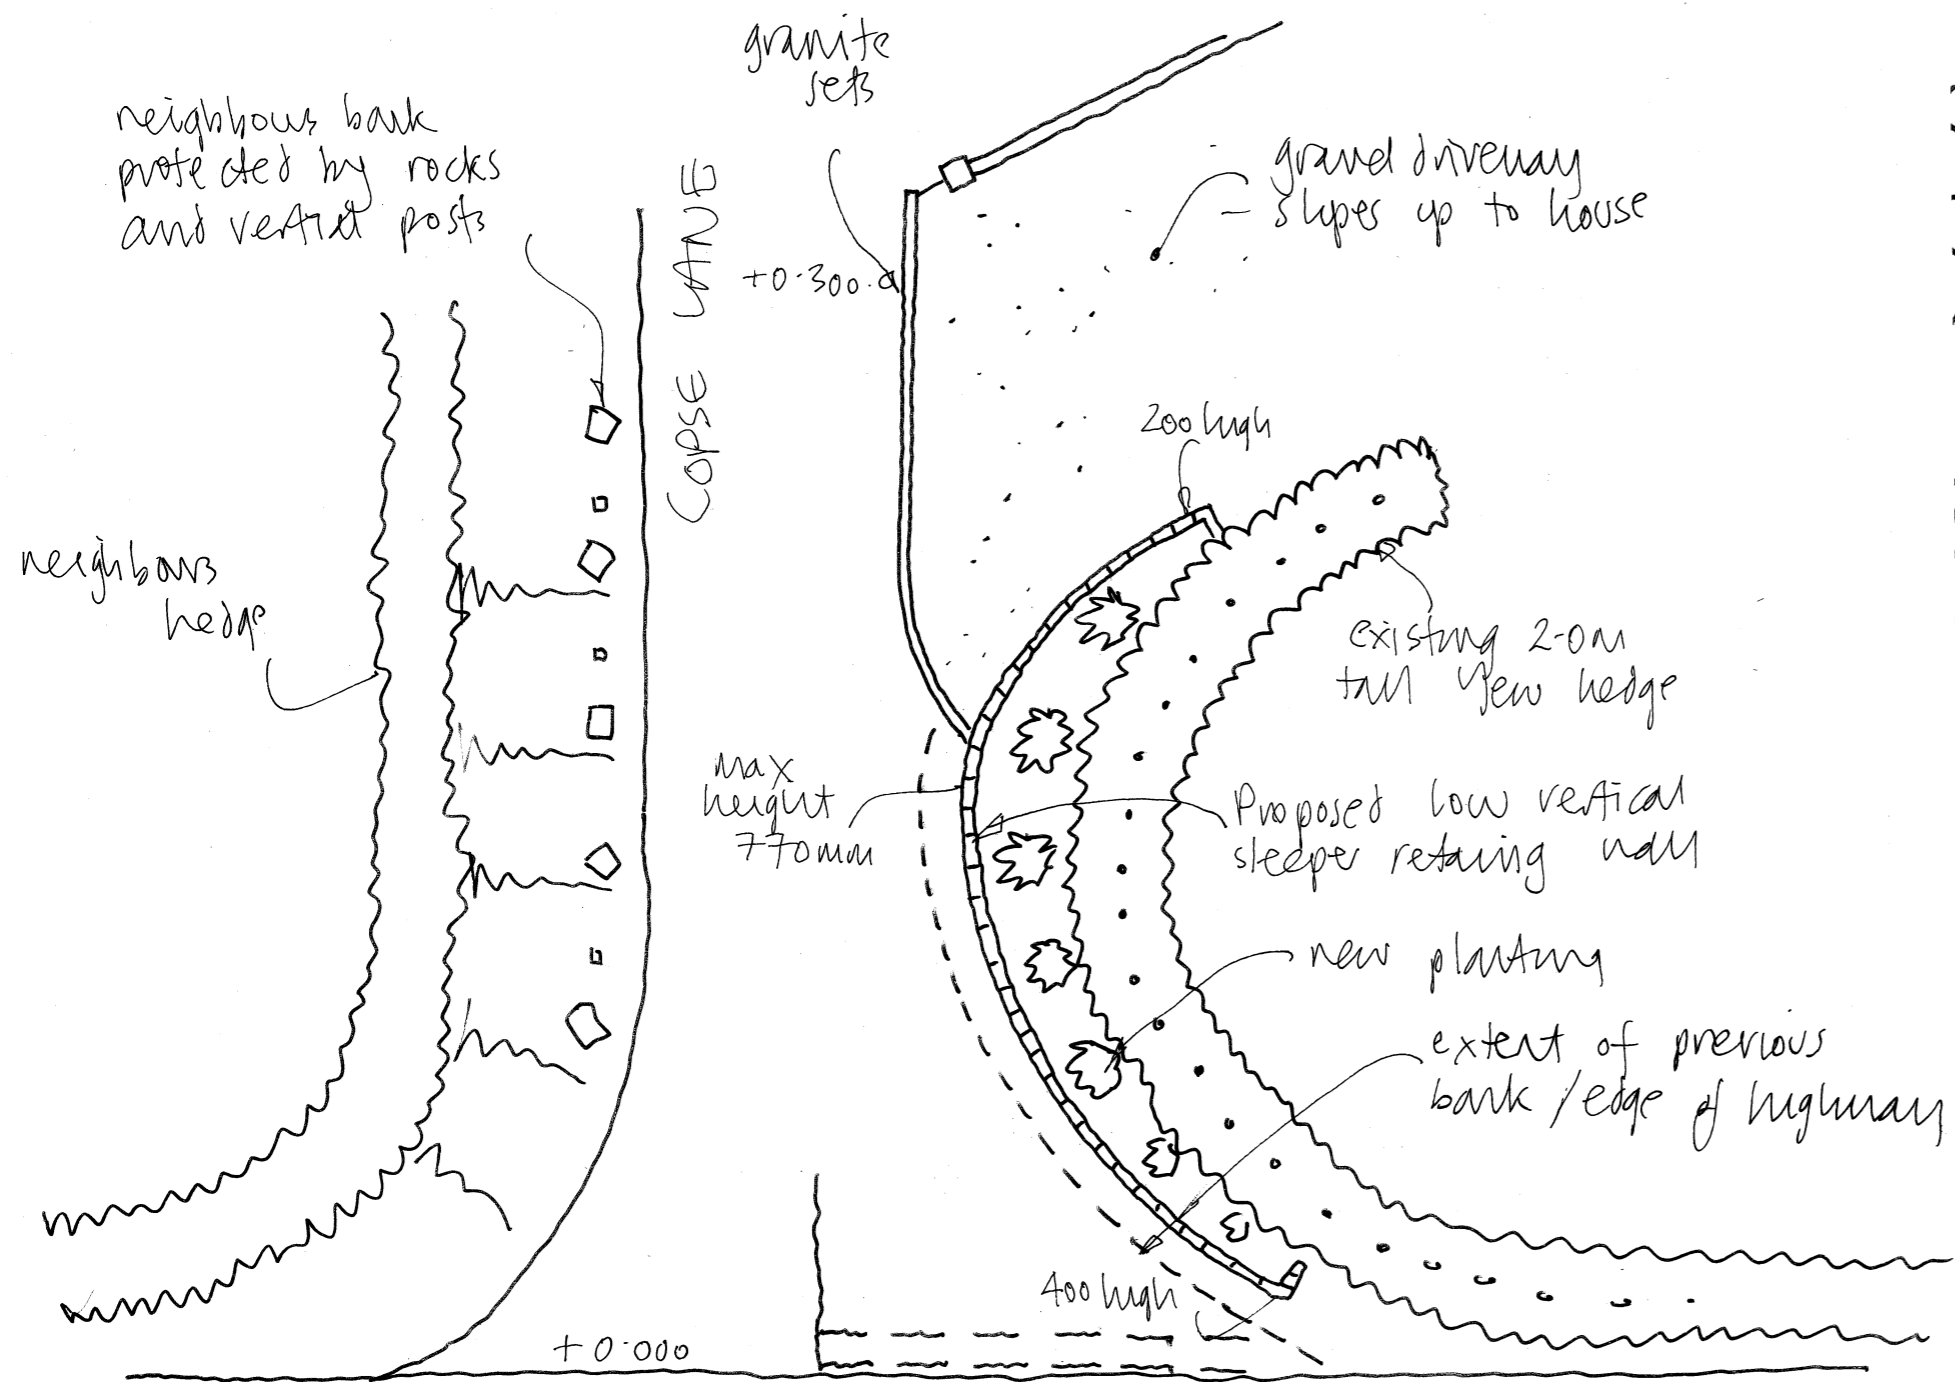 granite
sets
neighbours bank
protected by rocks
and vertical posts
COPSE LANE
+0.300
gravel driveway
- slopes up to house
200 high
neighbours
hedge
existing 2.0m
tall Yew hedge
max
height
770mm
Proposed low vertical
sleeper retaing wall
new planting
extent of previous
bank / edge of highway
400 high
+0.000